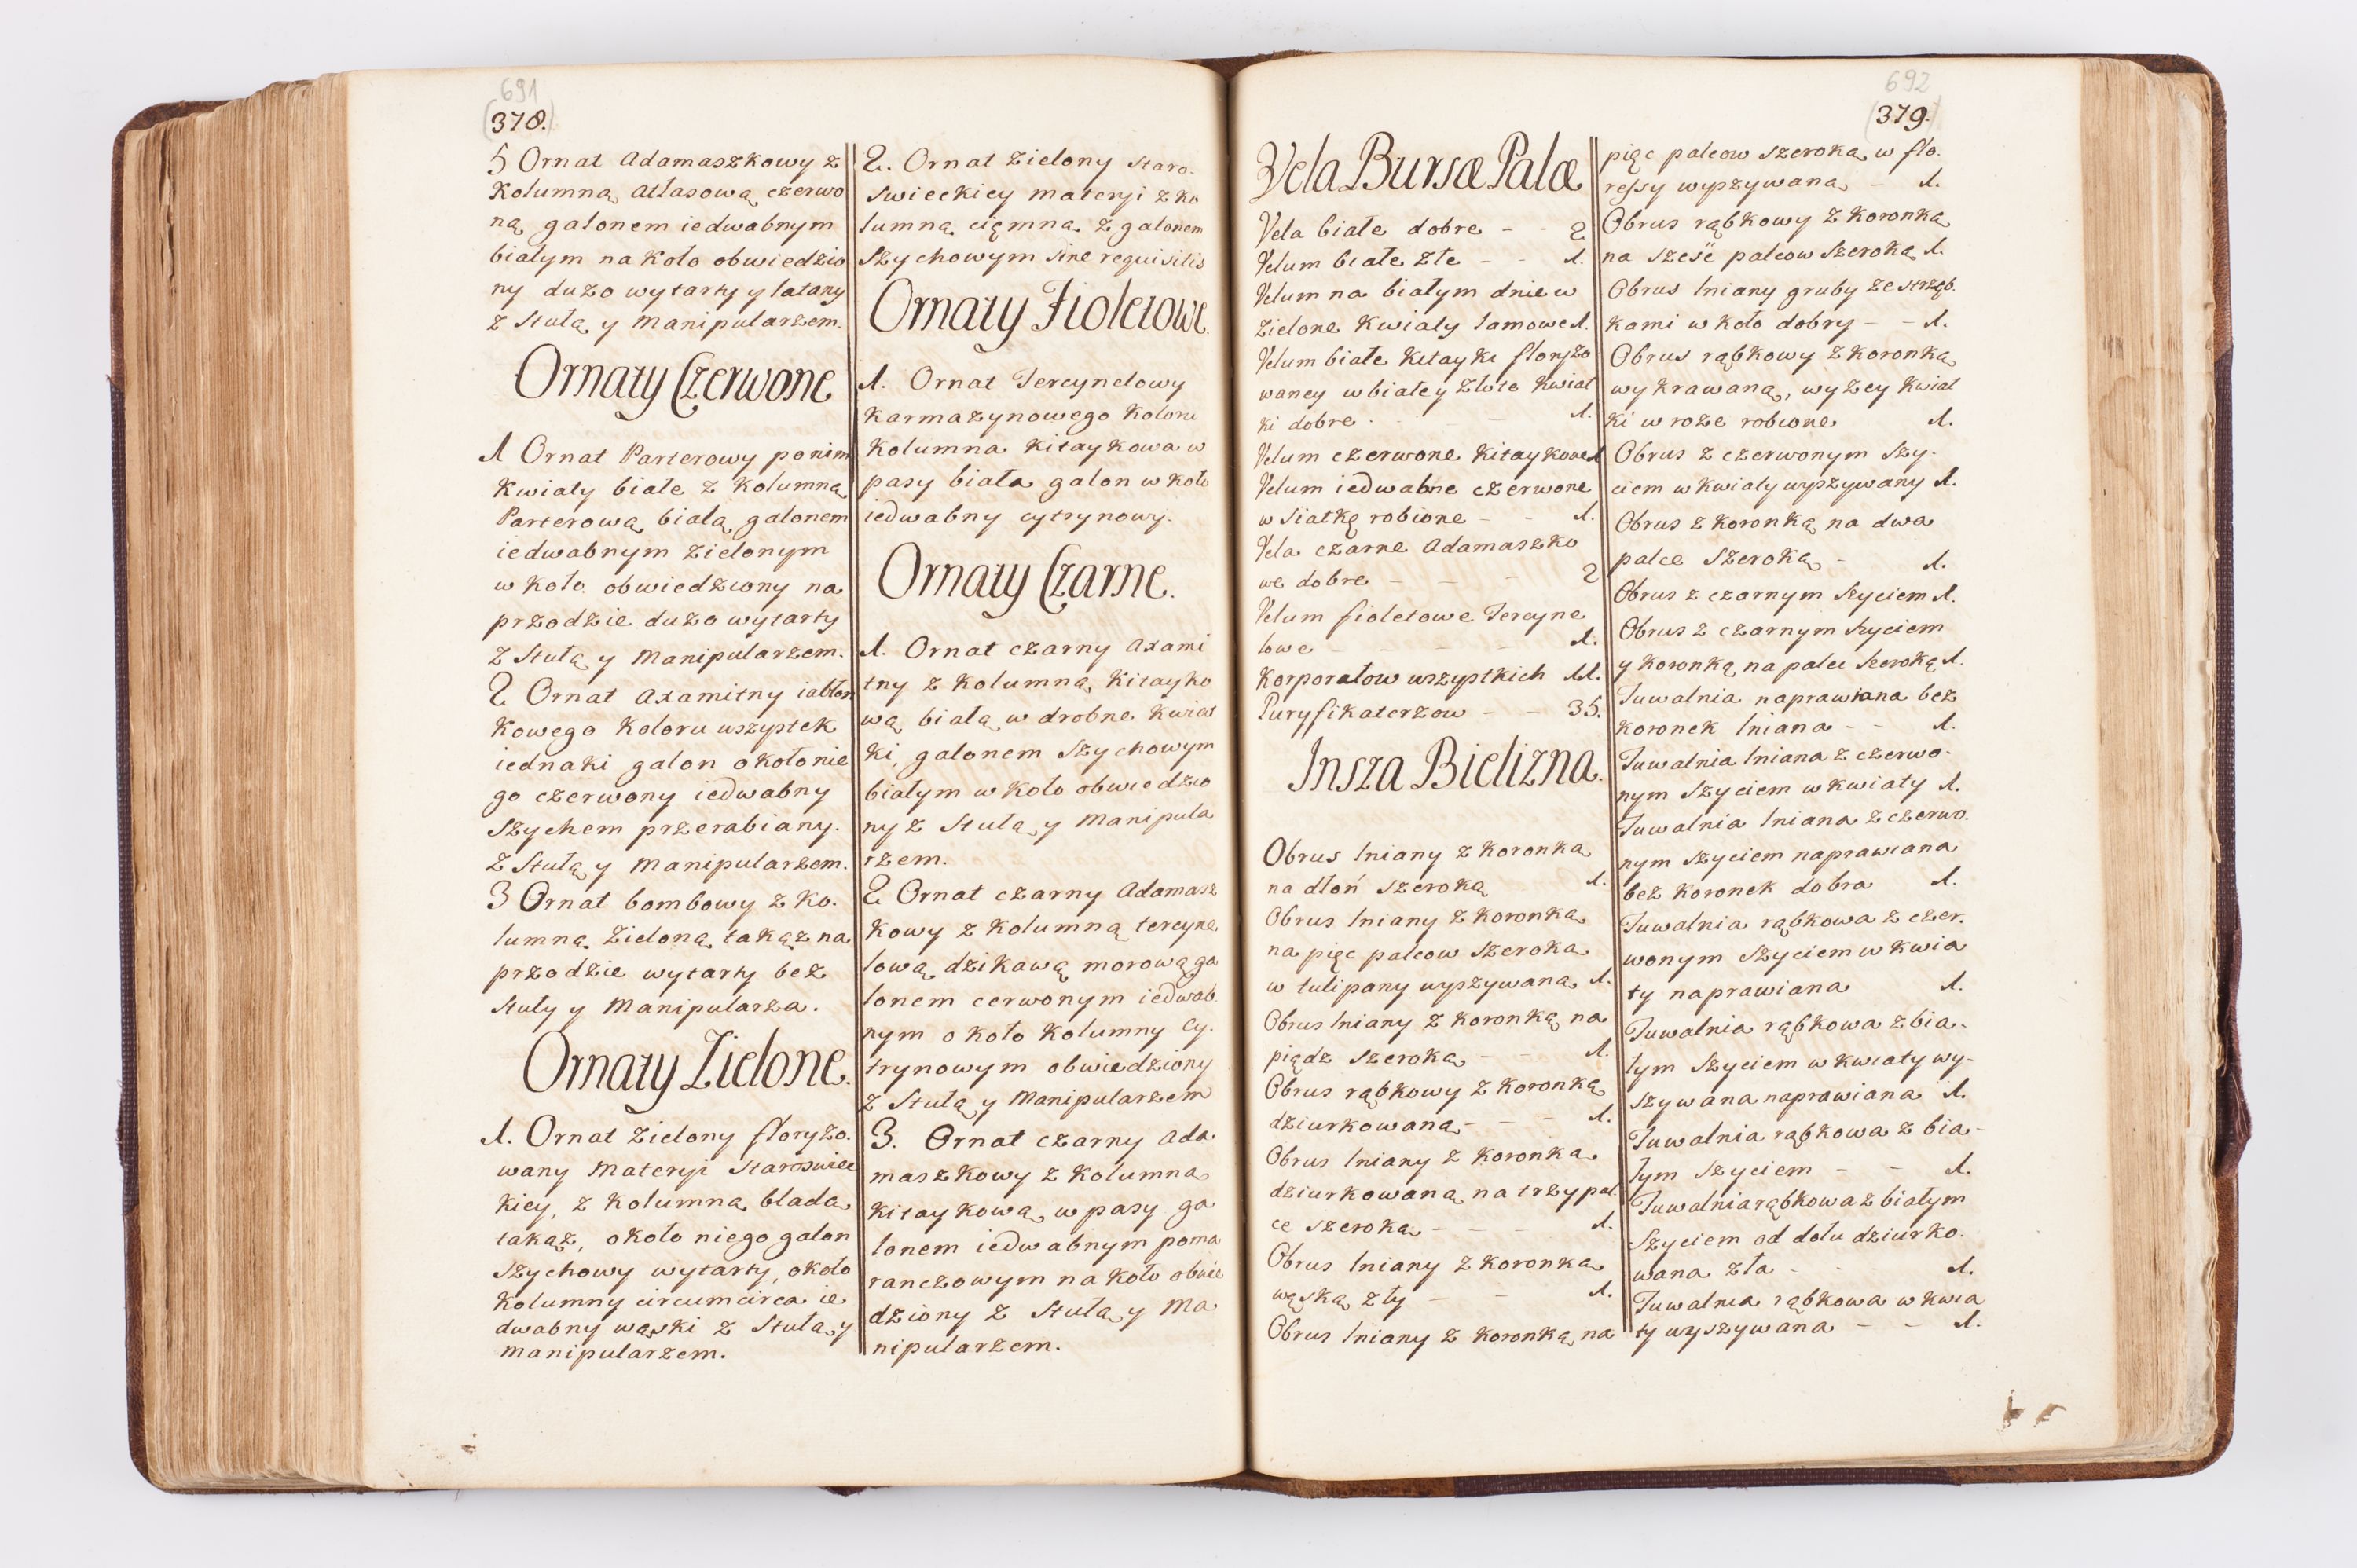 691
(378.)
5 Ornat Adamaszkowy z
Kolumną Atłasową czerwo
ną galonem iedwabnym
białym na koło obwiedzio
ny duzo wytarty y łatany
z Stułą y Manipularzem.
Ornaty Czerwone
1 Ornat Parterowy ponim
Kwiaty białe z Kolumną
Parterową białą galonem
iedwabnym zielonym
w koło obwiedziony na
przodzie duzo wytarty
z Stułą y Manipularzem.
2 Ornat Axamitny iabłon
kowego koloru wszystek
iednaki galon około nie
go czerwony iedwabny
Szychem przerabiany.
z Stułą y Manipularzem.
3 Ornat bombowy z Ko.
lumną Zieloną takąz na
przodzie wytarty bez
Stuły y Manipularza.
Ornaty Zielone.
1. Ornat Zielony floryzo.
wany Materyi Staroswiec
kiey, z Kolumną bladą
takąz, około niego galon
Szychowy wytarty, około
Kolumny circumcirca ie
dwabny wąski z Stułą y
manipularzem.
2. Ornat Zielony Staro.
Swieckiey materyi z ko
lumną cięmną z galonem
Szychowym sine requisitis
Ornaty Fioletowe.
1. Ornat Tercynelowy
Karmazynowego Koloru
Kolumna Kitaykowa w
pasy biała galon w koło
iedwabny cytrynowy.
Ornaty Czarne.
1. Ornat czarny Axami
tny z Kolumną Kitayko
wą białą w drobne Kwiat
ki, galonem Szychowym
białym w koło obwiedzio
ny z Stułą y Manipula
rzem.
2 Ornat czarny Adamasz
kowy z Kolumną tercyne
lową dzikawą morową ga
lonem cerwonym iedwab.
nym około Kolumny Cy.
trynowym obwiedziony
z Stułą y Manipularzem
3. Ornat czarny Ada
maszkowy z Kolumną
Kitaykową w pasy ga
lonem iedwabnym poma
ranczowym na koło obwie
dziony z Stułą y Ma
nipularzem.
692
(379.)
Vela Bursæ Palæ
Vela białe dobre - - 2
Velum białe złe - - 1.
Velum na białym dnie w
zielone Kwiaty lamowe 1.
Velum białe Kitayki floryzo
waney w białey złote Kwiat
ki dobre - 1.
Velum czerwone Kitaykowe 1
Velum iedwabne czerwone
w Siatkę robione - - 1.
Vela czarne Adamaszko
we dobre - - - 2
Velum fioletowe Tercyne
lowe - - - - 1.
Korporałow wszystkich 11.
Puryfikaterzow - - 35.
Insza Bielizna.
Obrus lniany z koronką
na dłoń szeroką 1.
Obrus lniany z koronką
na pięc palcow szeroka
w tulipany wyszywaną 1.
Obrus lniany z koronką na
piądz szeroką - - 1.
Obrus rąbkowy z koronką
dziurkowaną - - - 1.
Obrus lniany z koronką
dziurkowaną na trzy pal.
ce szeroką - - - 1.
Obrus lniany z koronką
wąską zły - - 1.
Obrus lniany z koronką na
pięc palcow szeroką w flo.
ressy wyszywaną - 1.
Obrus rąbkowy z koronką
na sześć palcow szeroką 1.
Obrus lniany gruby ze strząb.
kami w koło dobry - - 1.
Obrus rąbkowy z koronką
wykrawaną, wyzey kwiat
ki w roze robione 1.
Obrus z czerwonym Szy.
ciem w kwiaty wyszywany 1.
Obrus z koronką na dwa
palce szeroką - 1.
Obrus z czarnym szyciem 1.
Obrus z czarnym szyciem
y koronką na palce szeroką 1.
Tuwalnia naprawiana bez
koronek lniana - - 1.
Tuwalnia lniana z czerwo.
nym szyciem w kwiaty 1.
Tuwalnia lniana z czerwo.
nym szyciem naprawiana
bez koronek dobra 1.
Tuwalnia rąbkowa z czer.
wonym szyciem w kwia
ty naprawiana 1.
Tuwalnia rąbkowa z bia.
łym szyciem w kwiaty wy-
szywana naprawiana 1.
Tuwalnia rąbkowa z bia-
łym szyciem - - 1.
Tuwalnia rąbkowa z białym
szyciem od dołu dziurko.
wana zła - - 1.
Tuwalnia rąbkowa w kwia
ty wyszywana - - 1.